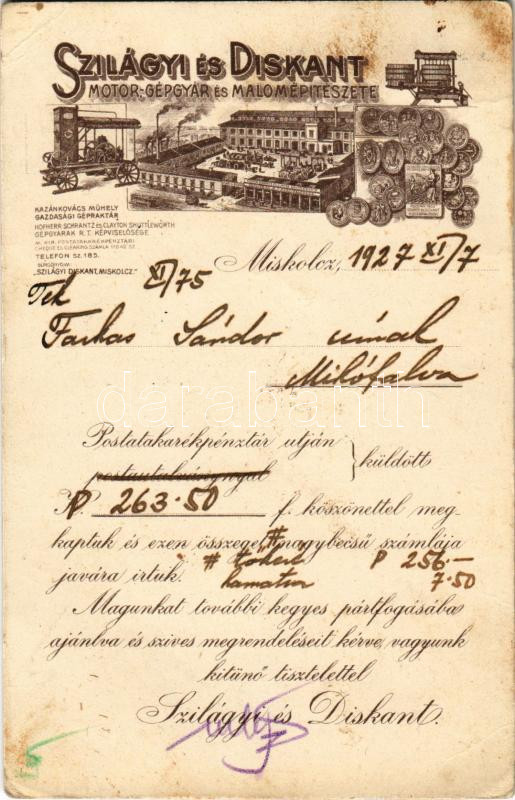 SZILÁGYI ÉS DISKANT
MOTOR-, GÉPGYÁR ÉS MALOMÉPITÉSZETE
KAZÁNKOVÁCS MŰHELY
GAZDASÁGI GÉPRAKTÁR
HOFHERR SCHRANTZ ÉS CLAYTON SHUTTLEWORTH
GÉPGYÁRAK R.T. KÉPVISELŐSÉGE
M. KIR. POSTATAKARÉKPÉNZTÁRI
TELEFON SZ. 185.
SÜRGÖNYCIM:
"SZILÁGYI DISKANT, MISKOLCZ."
Miskolcz, 1927 XI/7
XI/75
Tek
Farkas Sándor úrnak
darabanth
Postatakarékpénztár utján
postautalványnyal küldött
P 263·50 f. köszönettel meg-
kaptuk és ezen összeget # nagybecsű számlája
javára irtuk. # tőkére P 256.—
kamatra 7·50
Magunkat további kegyes pártfogásába
ajánlva és szives megrendeléseit kérve, vagyunk
kitünő tisztelettel
Szilágyi és Diskant.